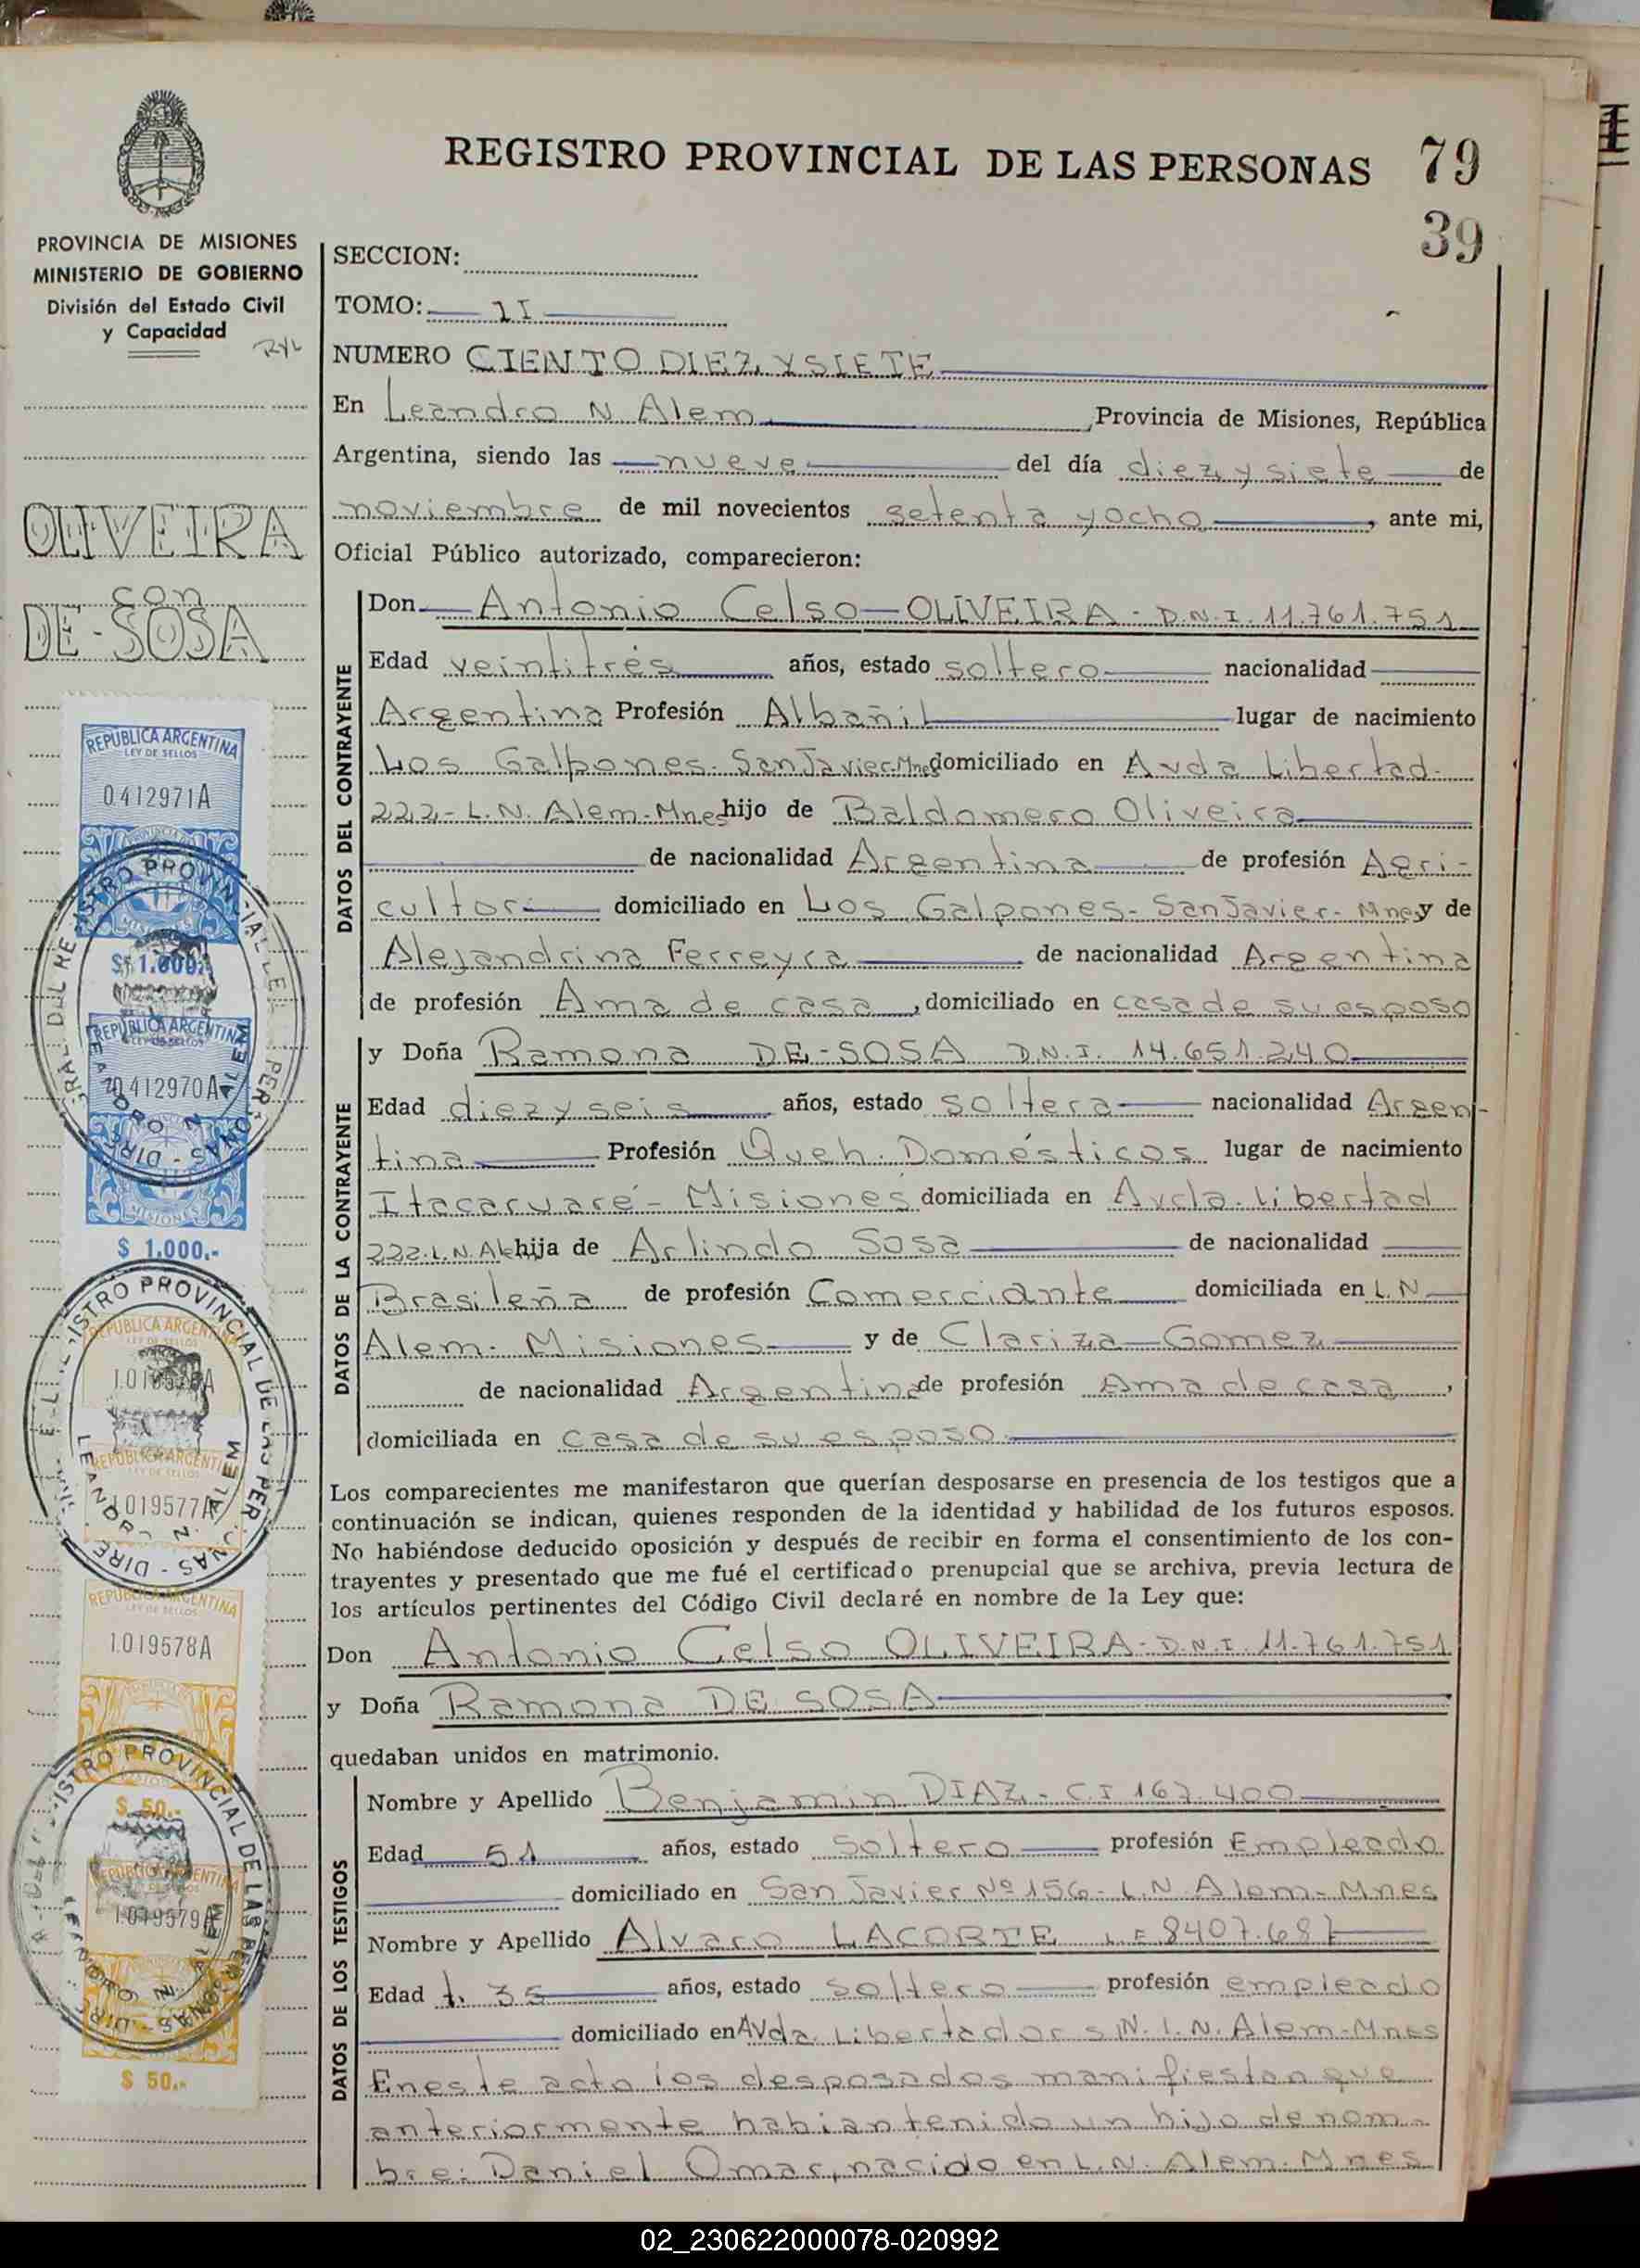 REGISTRO PROVINCIAL DE LAS PERSONAS 79
39
PROVINCIA DE MISIONES
MINISTERIO DE GOBIERNO
División del Estado Civil
y Capacidad
OLIVEIRA
con
DE-SOSA
REPUBLICA ARGENTINA
LEY DE SELLOS
0412971A
$ 1.000.-
REPUBLICA ARGENTINA
LEY DE SELLOS
0412970A
MISIONES
$ 1.000.-
REPUBLICA ARGENTINA
REPUBLICA ARGENTINA
LEY DE SELLOS
1019577A
REPUBLICA ARGENTINA
LEY DE SELLOS
1019578A
$ 50.-
REPUBLICA ARGENTINA
1019579A
$ 50.-
SECCION:
TOMO: II
NUMERO CIENTO DIEZ Y SIETE
En Leandro N Alem, Provincia de Misiones, República
Argentina, siendo las nueve del día diez y siete de
noviembre de mil novecientos setenta y ocho, ante mi,
Oficial Público autorizado, comparecieron:
DATOS DEL CONTRAYENTE
Don Antonio Celso OLIVEIRA - D.N.I. 11.761.751
Edad veintitrés años, estado soltero nacionalidad
Argentina Profesión Albañil lugar de nacimiento
Los Galpones. San Javier.Mnes domiciliado en Avda Libertad.
222 - L.N. Alem-Mnes hijo de Baldomero Oliveira
de nacionalidad Argentina de profesión Agri-
cultor domiciliado en Los Galpones- San Javier- Mnes y de
Alejandrina Ferreyra de nacionalidad Argentina
de profesión Ama de casa, domiciliado en casa de su esposo
DATOS DE LA CONTRAYENTE
y Doña Ramona DE-SOSA D.N.I. 14.651.240
Edad diez y seis años, estado soltera nacionalidad Argen-
tina Profesión Queh. Domésticos lugar de nacimiento
Itacaruaré - Misiones domiciliada en Avda. Libertad
222.L.N. Ale hija de Arlindo Sosa de nacionalidad
Brasileña de profesión Comerciante domiciliada en L.N
Alem. Misiones y de Clariza Gomez
de nacionalidad Argentina de profesión Ama de casa,
domiciliada en casa de su esposo
Los comparecientes me manifestaron que querían desposarse en presencia de los testigos que a
continuación se indican, quienes responden de la identidad y habilidad de los futuros esposos.
No habiéndose deducido oposición y después de recibir en forma el consentimiento de los con-
trayentes y presentado que me fué el certificado prenupcial que se archiva, previa lectura de
los artículos pertinentes del Código Civil declaré en nombre de la Ley que:
Don Antonio Celso OLIVEIRA - D.N.I. 11.761.751
y Doña Ramona DE SOSA
quedaban unidos en matrimonio.
DATOS DE LOS TESTIGOS
Nombre y Apellido Benjamin DIAZ - C.I 167.400
Edad 51 años, estado soltero profesión Empleado
domiciliado en San Javier Nº 156 - L.N. Alem - Mnes
Nombre y Apellido Alvaro LACORTE L.E 8407.687
Edad 35 años, estado soltero profesión empleado
domiciliado en Avda. Libertador s/N. L.N. Alem-Mnes
En este acto los desposados manifiestan que
anteriormente habian tenido un hijo de nom-
bre: Daniel Omar, nacido en L.N. Alem. Mnes
02_230622000078-020992